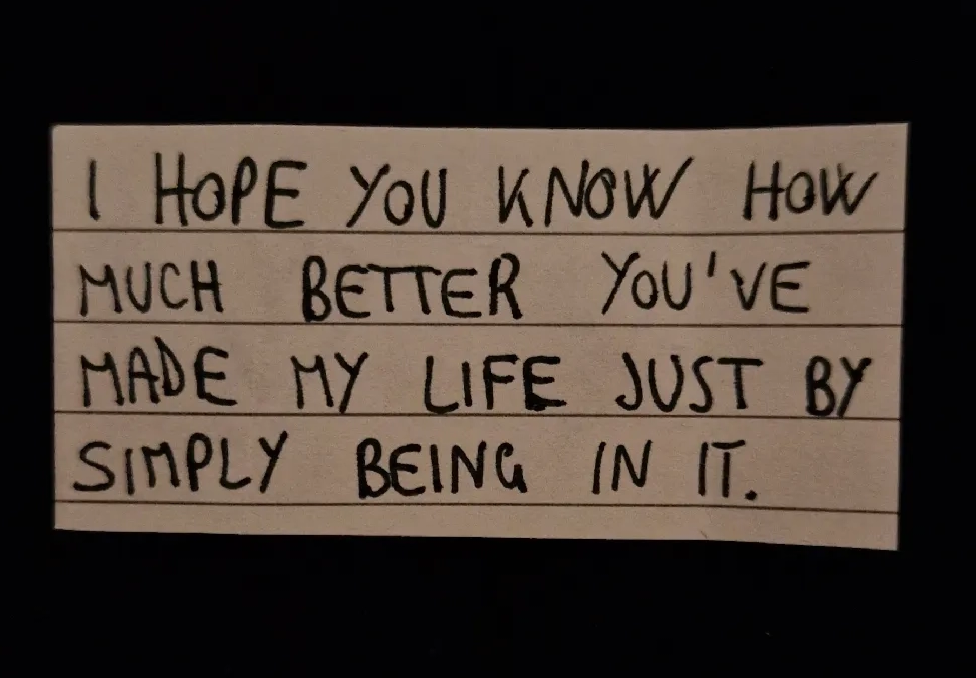 I HOPE YOU KNOW HOW
MUCH BETTER YOU'VE
MADE MY LIFE JUST BY
SIMPLY BEING IN IT.